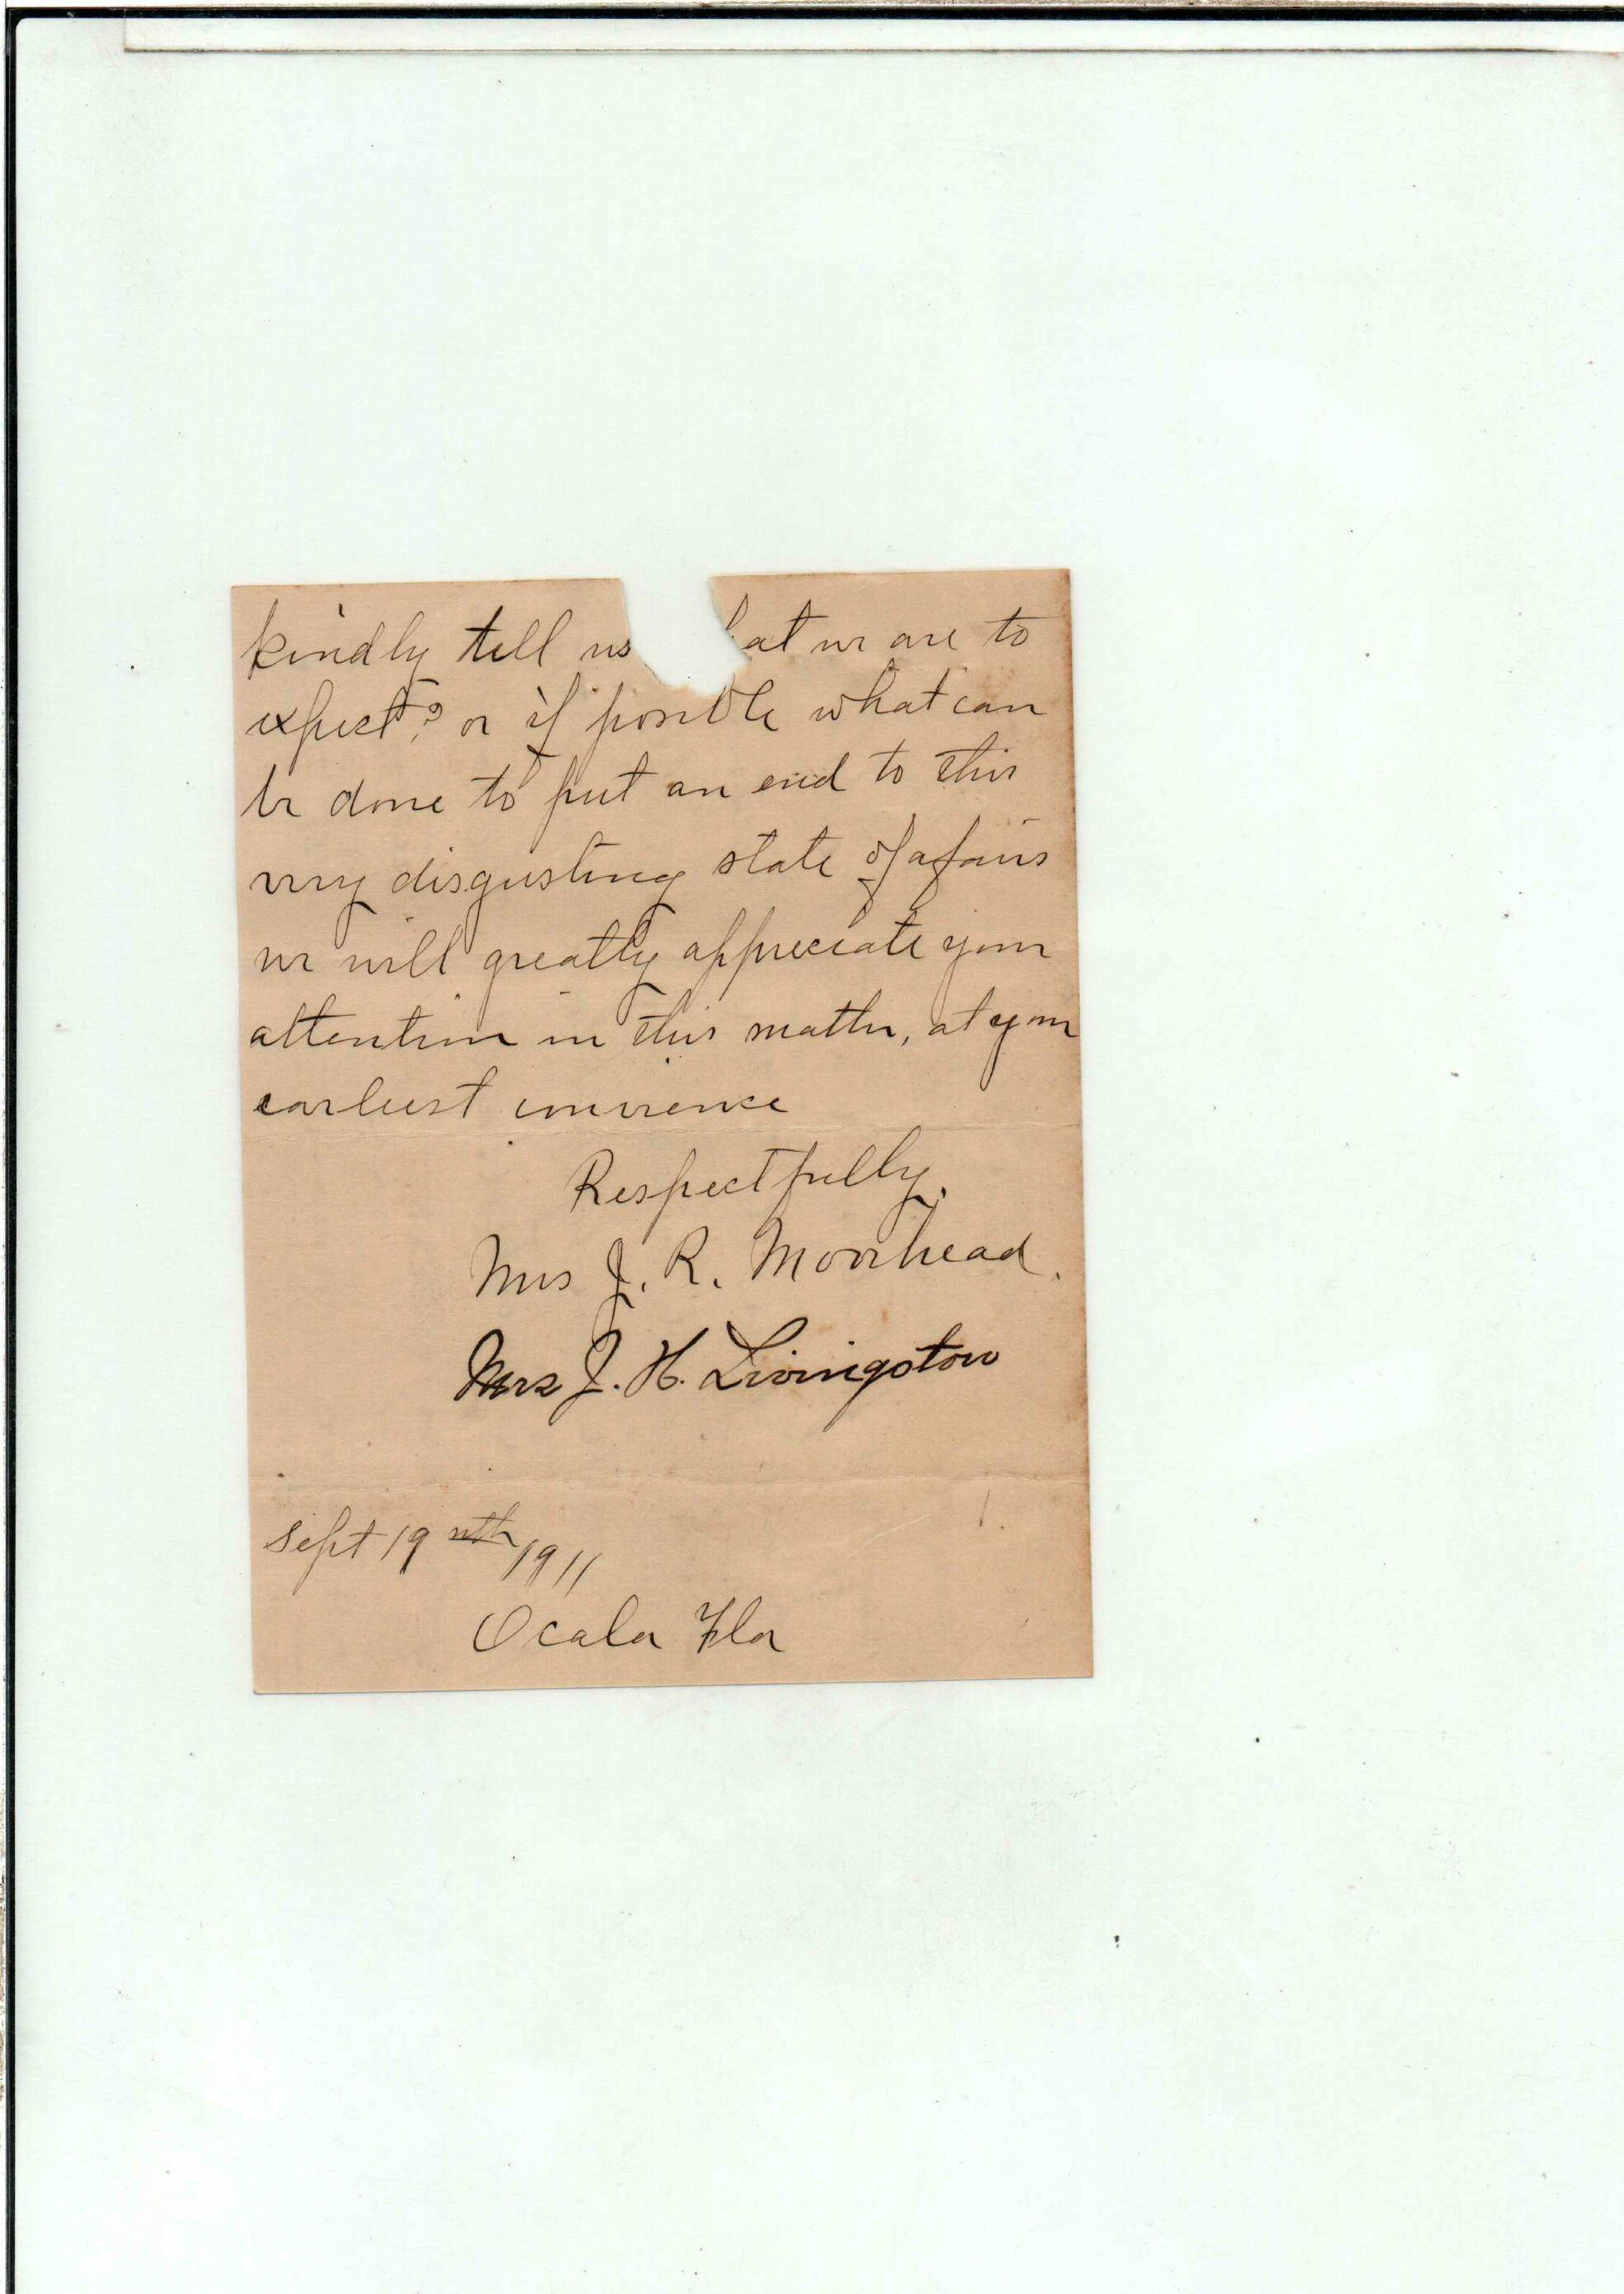 kindly tell us hat we are to
expect? or if possible what can
be done to put an end to this
very disgusting state of afairs
we will greatly appreciate your
attention in this matter, at your
earliest
Respectfully,
Mrs J. R. Moorhead.
Mrs J. H. Livingston
Sept 19 nth 1911
Ocala Fla